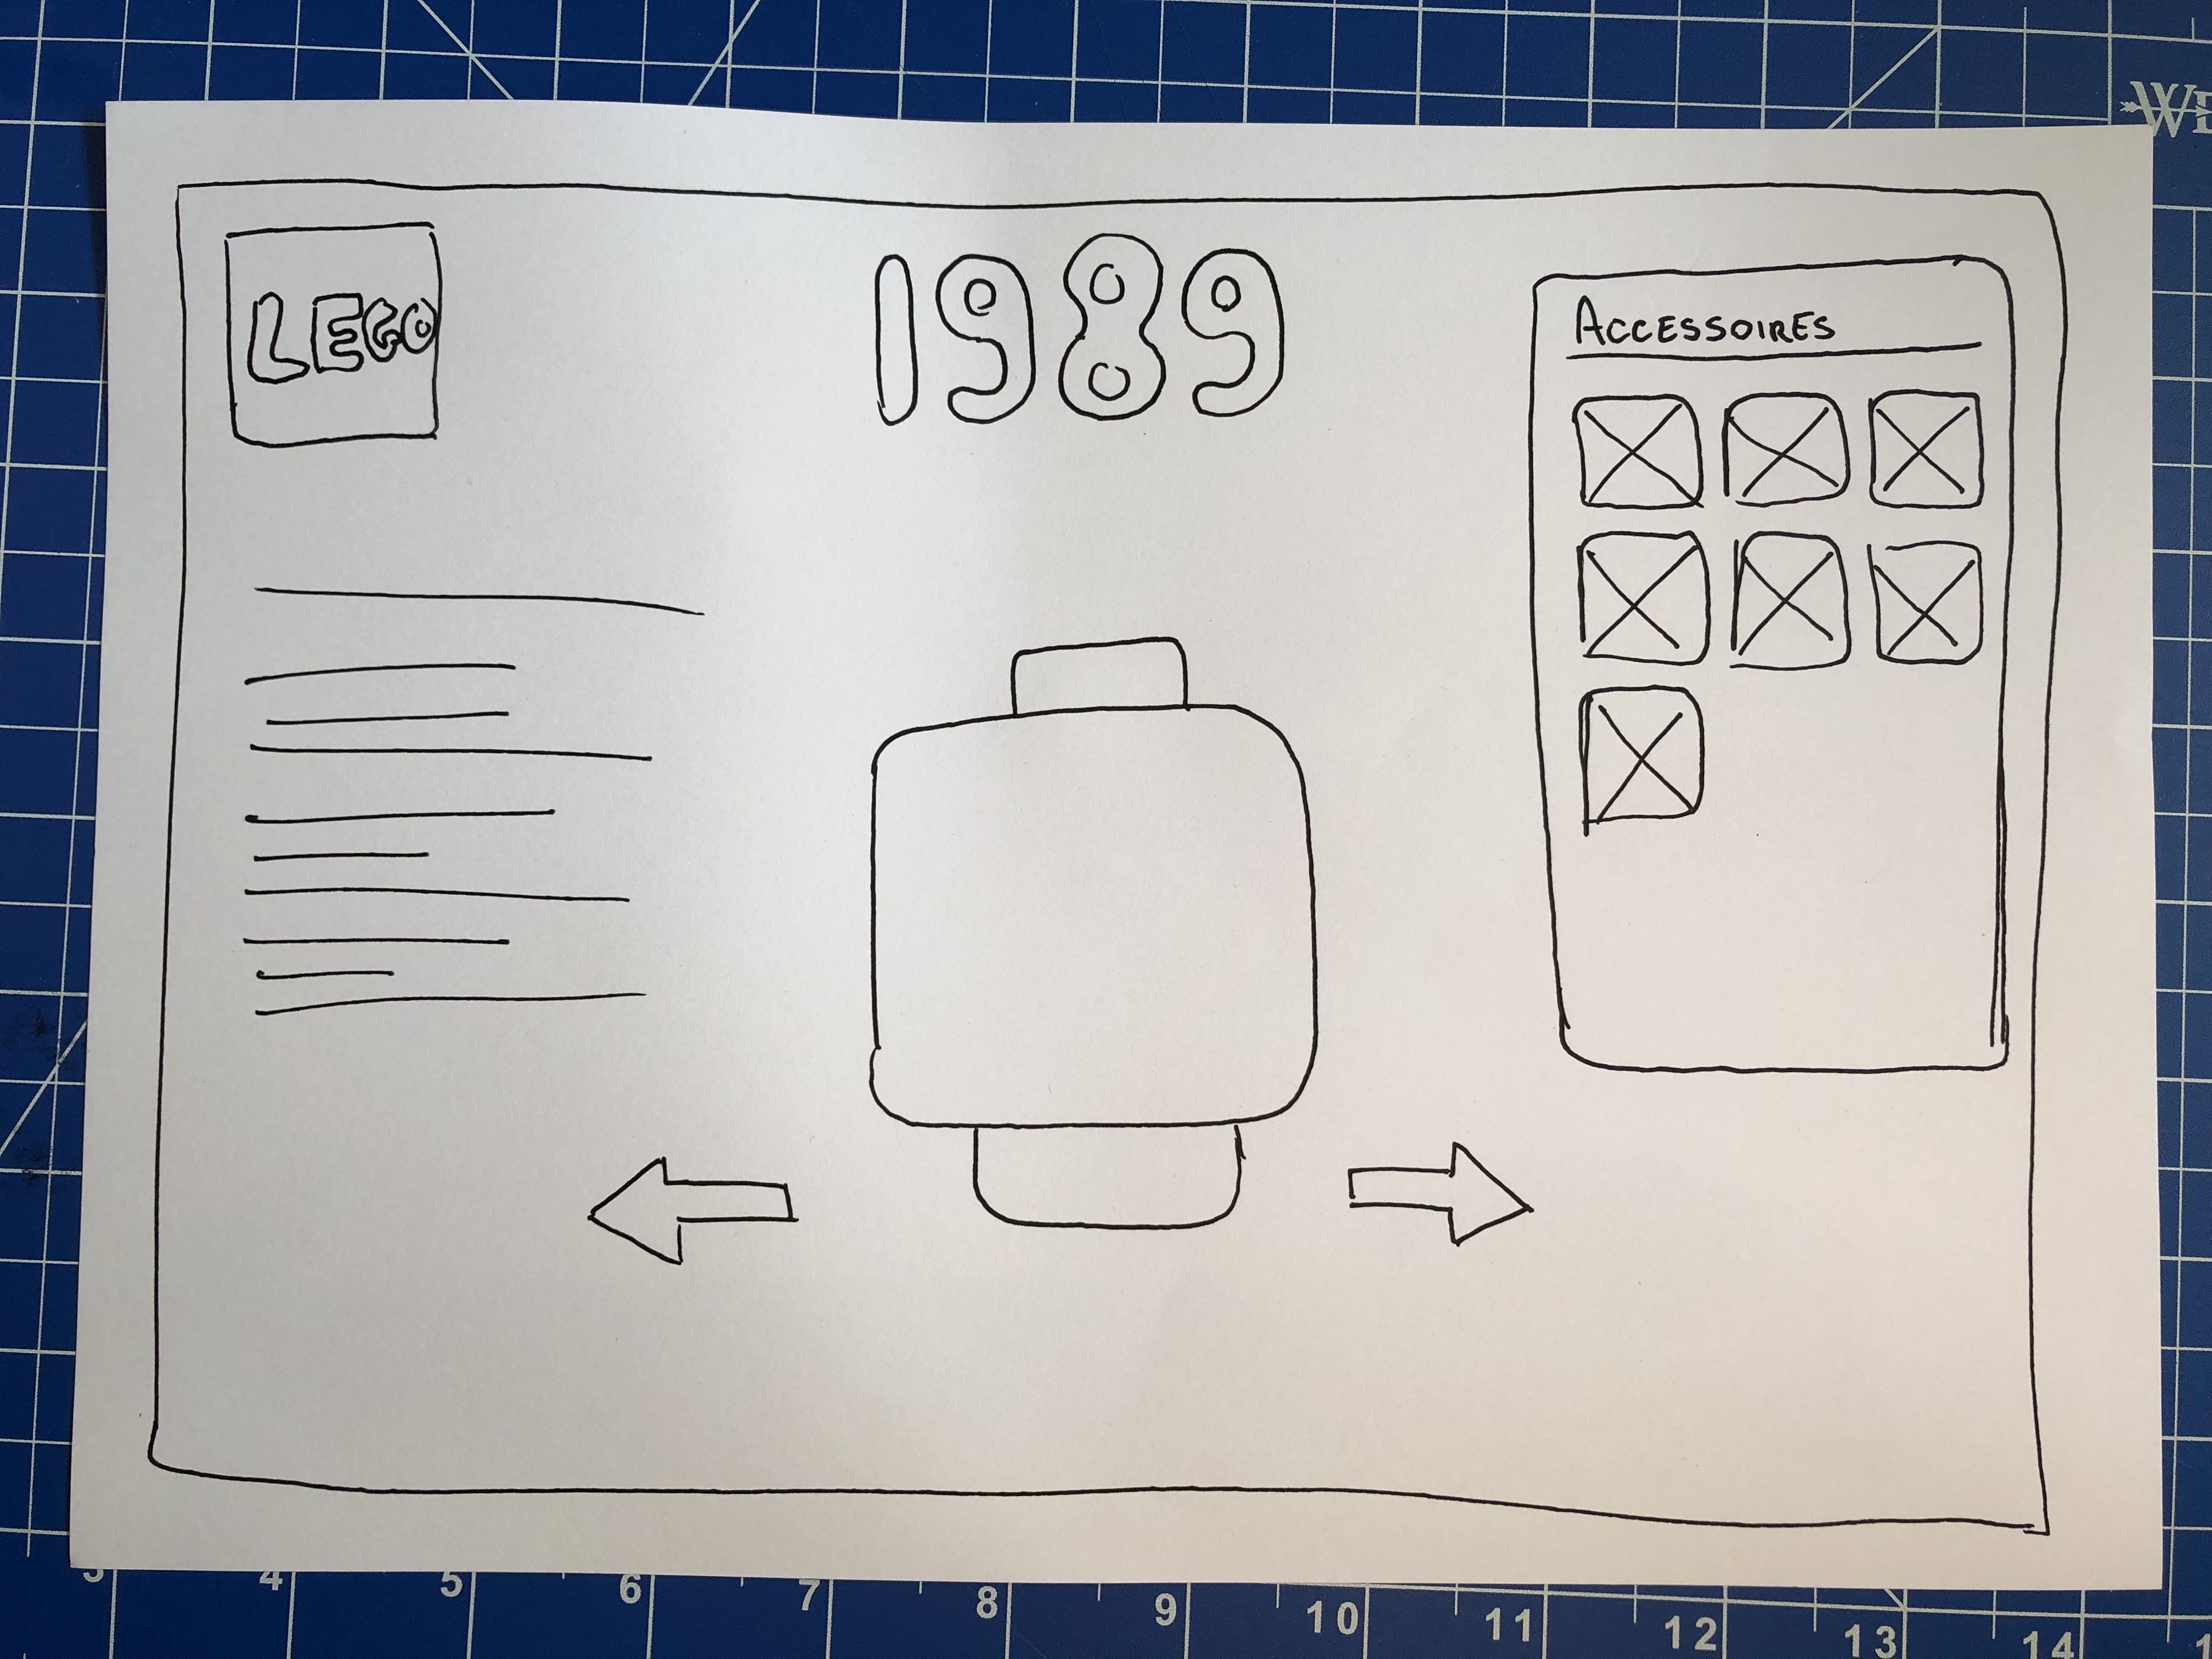 LEGO
1989
ACCESSOIRES
3 4 5 6 7 8 9 10 11 12 13 14